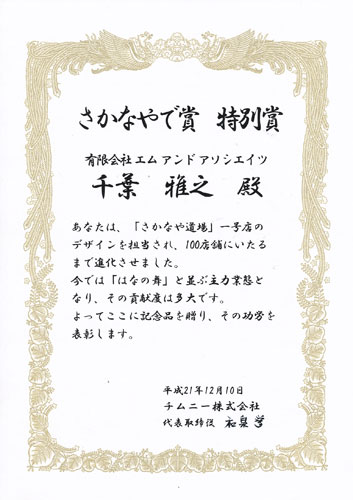 さかなやで賞 特別賞
有限会社エム アンド アソシエイツ
千葉 雅之 殿
あなたは、「さかなや道場」一号店の
デザインを担当され、100店舗にいたる
まで進化させました。
今では「はなの舞」と並ぶ主力業態と
なり、その貢献度は多大です。
よってここに記念品を贈り、その功労を
表彰します。
平成21年12月10日
チムニー株式会社
代表取締役 和泉 學